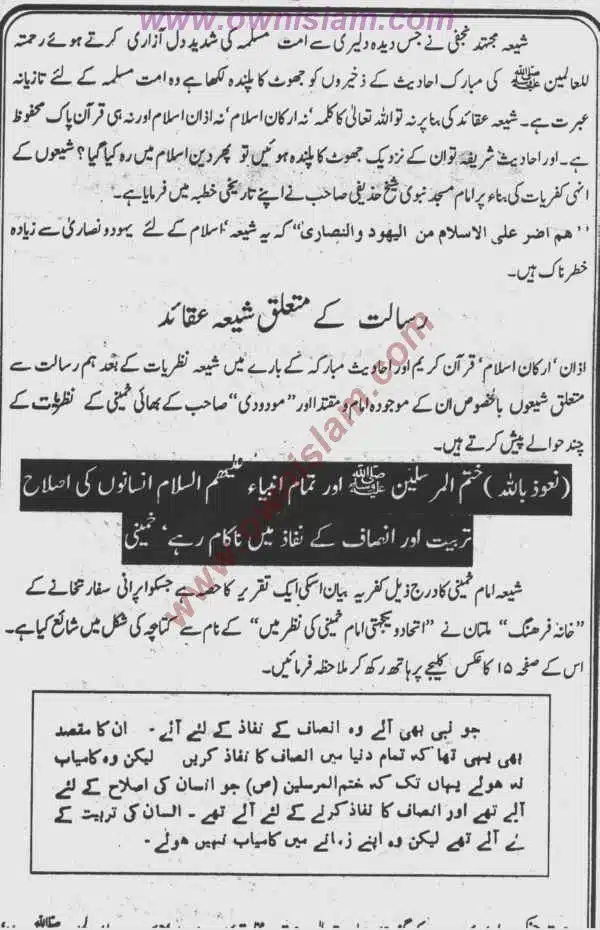 www.ownislam.com
شیعہ مجتہد نجفی نے جس دیدہ دلیری سے امت مسلمہ کی شدید دل آزاری کرتے ہوئے رحمتہ
للعالمین ﷺ کی مبارک احادیث کے ذخیروں کو جھوٹ کا پلندہ لکھا ہے وہ امت مسلمہ کے لئے تازیانہ
عبرت ہے۔ شیعہ عقائد کی بنا پر نہ تو اللہ تعالیٰ کا کلمہ‘ نہ ارکان اسلام‘ نہ اذان اسلام اور نہ ہی قرآن پاک محفوظ
ہے۔ اور احادیث شریفہ تو ان کے نزدیک جھوٹ کا پلندہ ہوئیں تو پھر دین اسلام میں رہ کیا گیا؟ شیعوں کے
انہی کفریات کی بناء پر امام مسجد نبوی شیخ حذیفی صاحب نے اپنے تاریخی خطبہ میں فرمایا ہے۔
’’ھم اضر علی الاسلام من الیھود والنصاری‘‘ کہ یہ شیعہ‘ اسلام کے لئے یہود و نصاریٰ سے زیادہ
خطرناک ہیں۔
رسالت کے متعلق شیعہ عقائد
اذان‘ ارکان اسلام‘ قرآن کریم اور احادیث مبارکہ کے بارے میں شیعہ نظریات کے بعد ہم رسالت سے
متعلق شیعوں بالخصوص ان کے موجودہ امام و مقتدا اور ’’مودودی‘‘ صاحب کے بھائی خمینی کے نظریات کے
چند حوالے پیش کرتے ہیں۔
(نعوذ باللہ) ختم المرسلین ﷺ اور تمام انبیاء علیھم السلام انسانوں کی اصلاح
تربیت اور انصاف کے نفاذ میں ناکام رہے‘ خمینی
شیعہ امام خمینی کا درج ذیل کفریہ بیان اسکی ایک تقریر کا حصہ ہے جسکو ایرانی سفارتخانے کے
’’خانہ فرھنگ‘‘ ملتان نے ’’اتحاد و یکجہتی امام خمینی کی نظر میں‘‘ کے نام سے کتابچہ کی شکل میں شائع کیا ہے۔
اس کے صفحہ ۱۵ کا عکس کلیجے پر ہاتھ رکھ کر ملاحظہ فرمائیں۔
جو نبی بھی آئے وہ انصاف کے نفاذ کے لئے آئے۔ ان کا مقصد
بھی یہی تھا کہ تمام دنیا میں انصاف کا نفاذ کریں لیکن وہ کامیاب
نہ ہوئے یہاں تک کہ ختم المرسلین (ص) جو انسان کی اصلاح کے لئے
آئے تھے اور انصاف کا نفاذ کرنے کے لئے آئے تھے۔ انسان کی تربیت کے
ئے آئے تھے لیکن وہ اپنے زمانے میں کامیاب نہیں ہوئے۔
www.ownislam.com